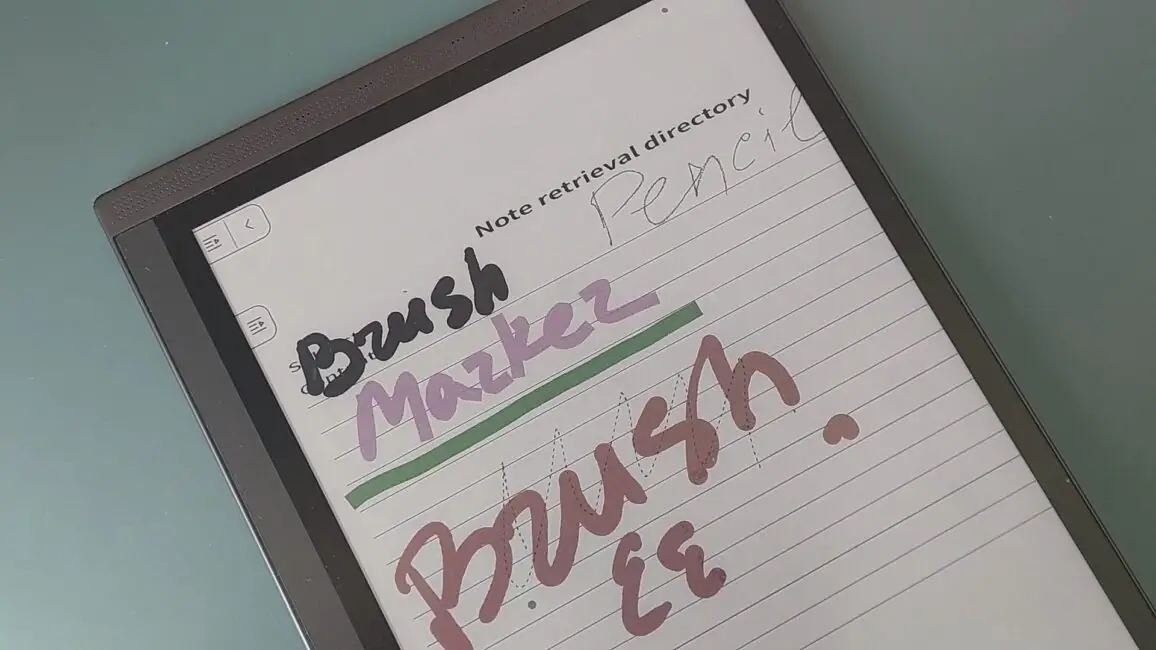 Note retrieval directory
Pencil
Brush
Mazkez
Brush